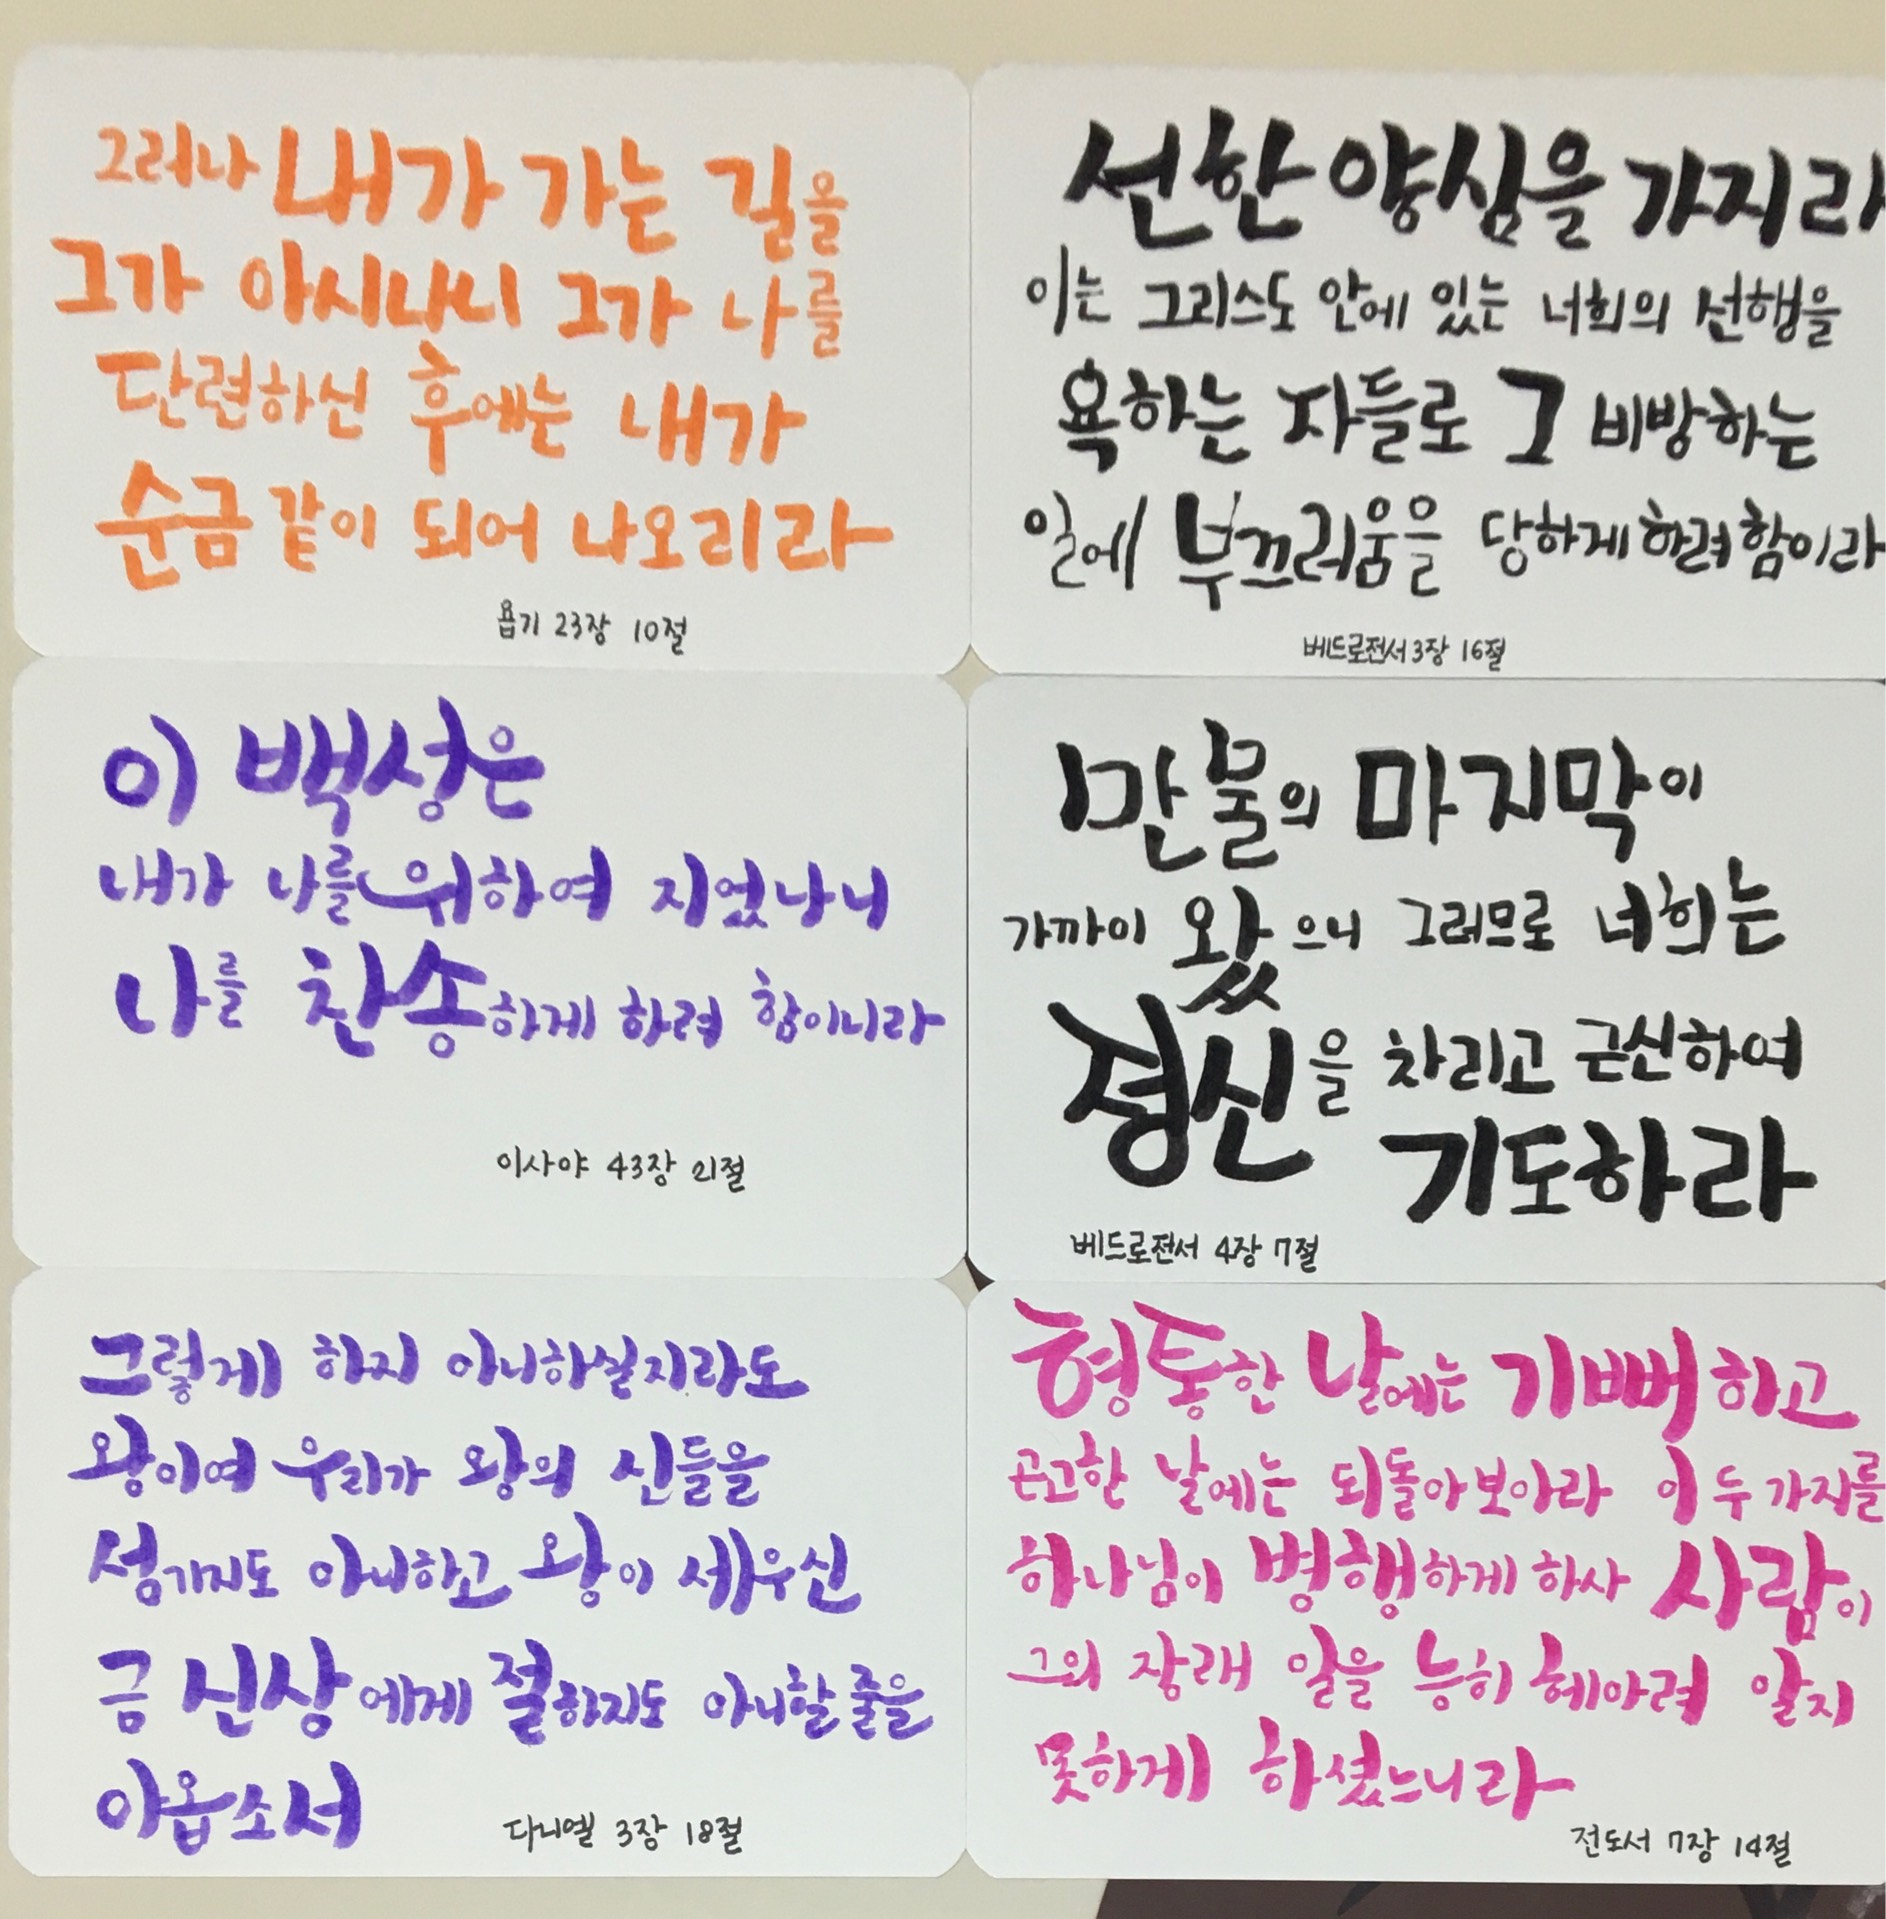 그러나 내가 가는 길을
그가 아시나니 그가 나를
단련하신 후에는 내가
순금 같이 되어 나오리라
욥기 23장 10절
선한 양심을 가지라
이는 그리스도 안에 있는 너희의 선행을
욕하는 자들로 그 비방하는
일에 부끄러움을 당하게 하려 함이라
베드로전서 3장 16절
이 백성은
내가 나를 위하여 지었나니
나를 찬송하게 하려 함이니라
이사야 43장 21절
만물의 마지막이
가까이 왔으니 그러므로 너희는
정신을 차리고 근신하여
기도하라
베드로전서 4장 7절
그렇게 하지 아니하실지라도
왕이여 우리가 왕의 신들을
섬기지도 아니하고 왕이 세우신
금 신상에게 절하지도 아니할 줄을
아옵소서
다니엘 3장 18절
형통한 날에는 기뻐하고
곤고한 날에는 되돌아 보아라 이 두 가지를
하나님이 병행하게 하사 사람이
그의 장래 일을 능히 헤아려 알지
못하게 하셨느니라
전도서 7장 14절